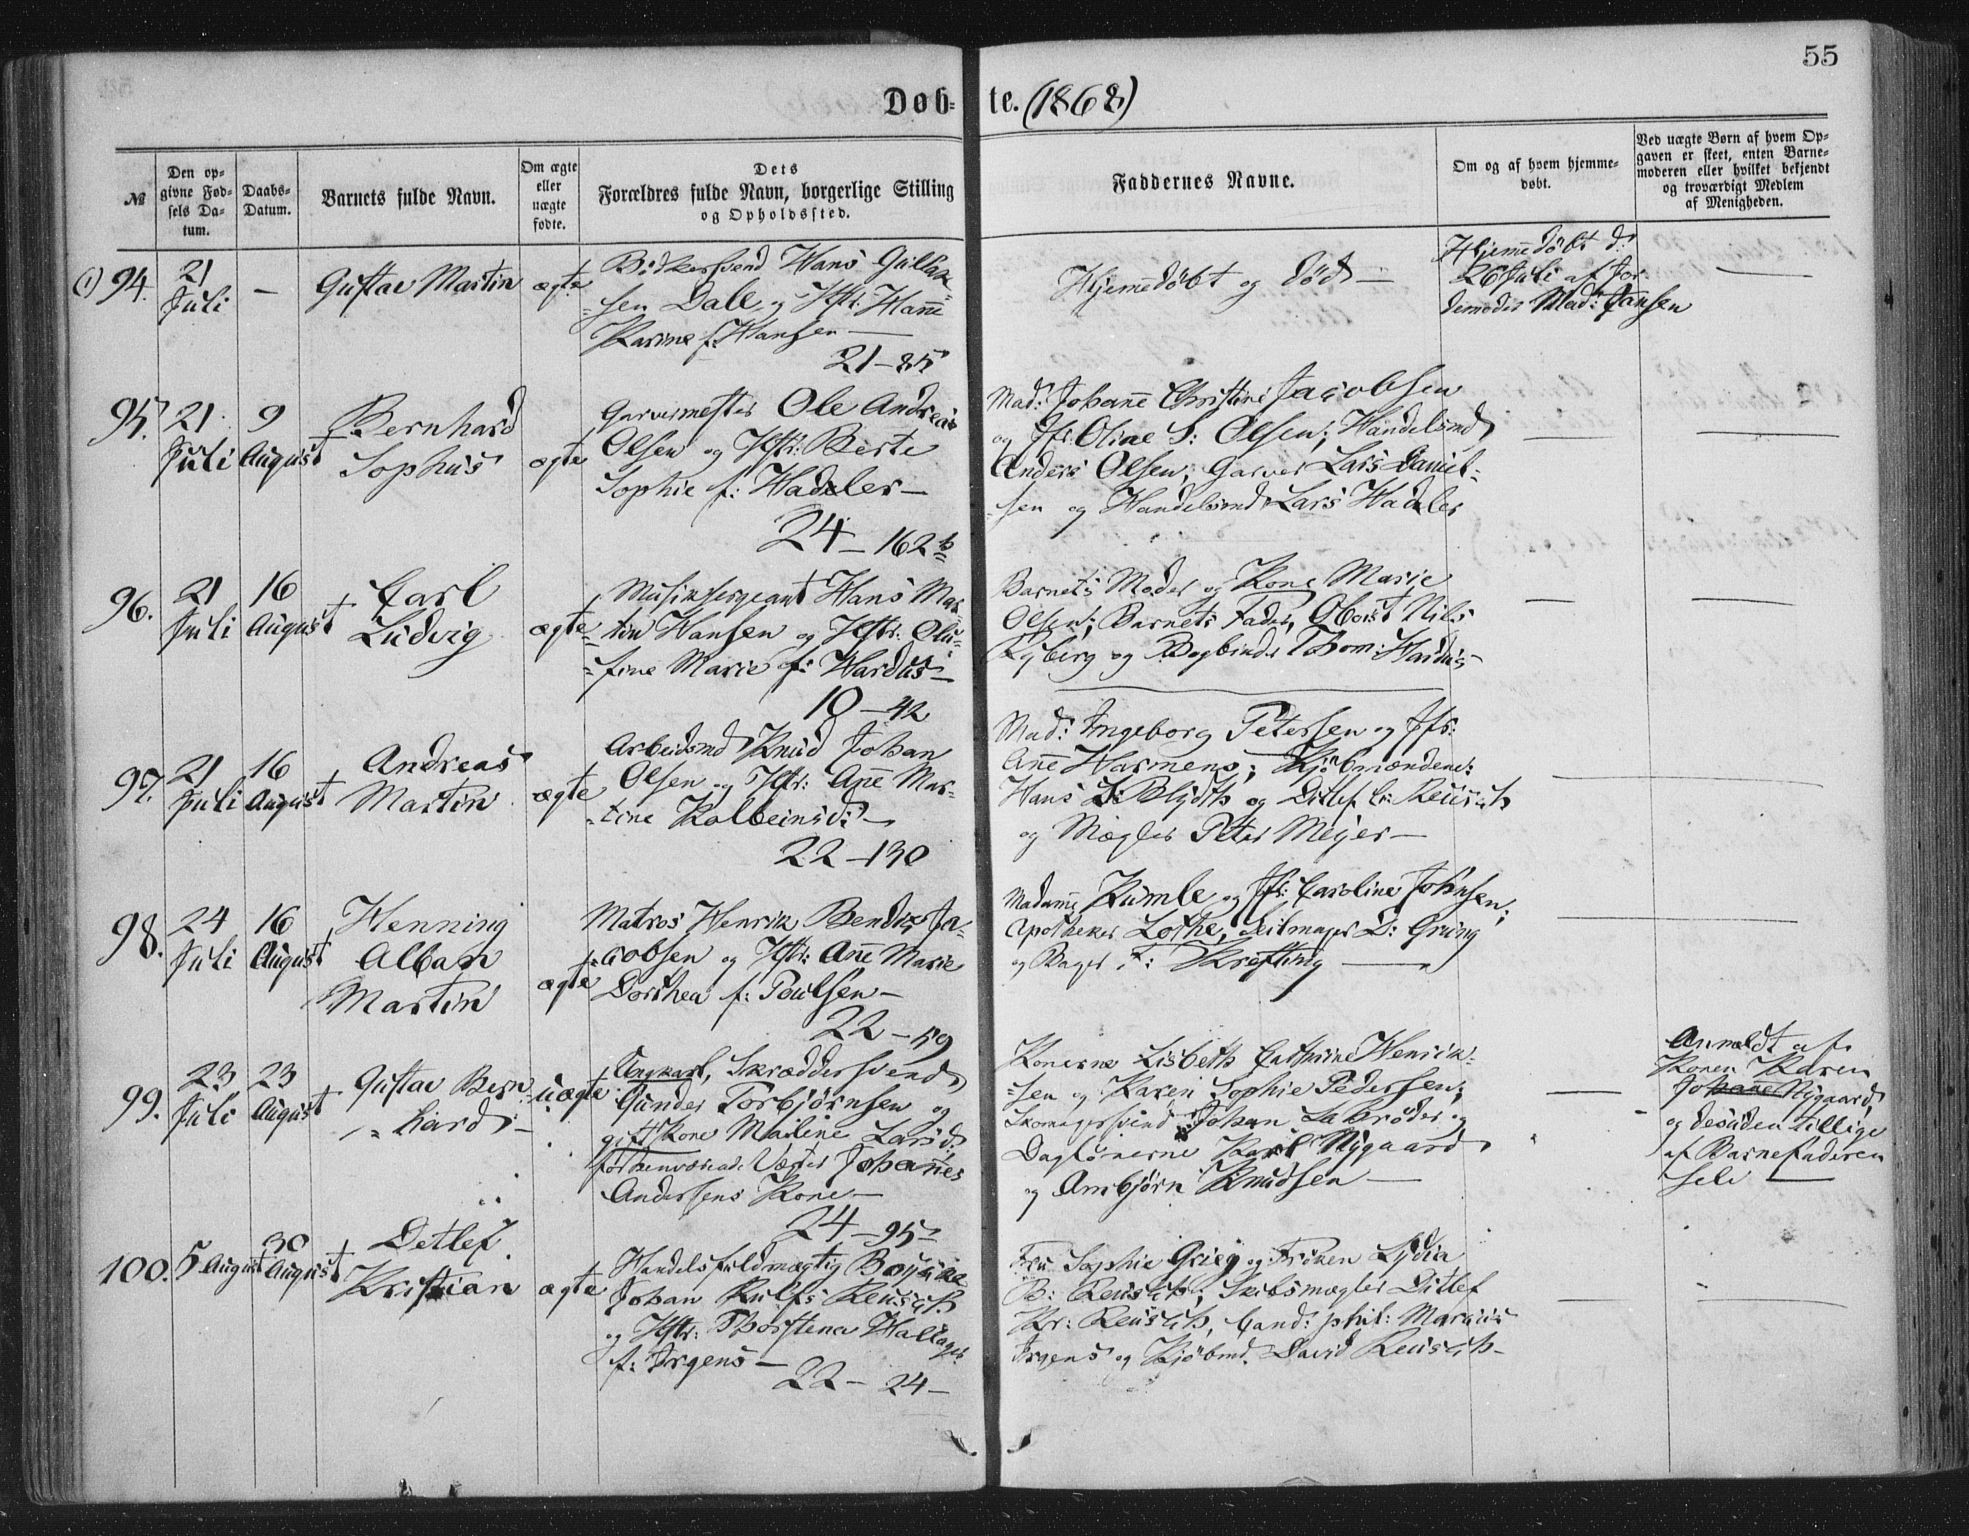 55
Døb-
te. (1868)
№
Den op-
givne Fød-
sels Da-
tum.
Daabs-
Datum.
Barnets fulde Navn.
Om ægte
eller
uægte
fødte.
Dets
Forældres fulde Navn, borgerlige Stilling
og Opholdssted.
Faddernes Navne.
Om og af hvem hjemme-
døbt.
Ved uægte Børn af hvem Op-
gaven er skeet, enten Barne-
moderen eller hvilket bekjendt
og troværdigt Medlem
af Menigheden.
94.
21
Juli
—
Gustav Martin
ægte
Bødkersvend Hans Gullak-
sen Dale og Hstr: Hanne
Karine f. Hansen —
21-85
Hjemmedøbt og død —
Hjemmedøbt d:
26 Juli af Jor-
demoder Mad: Jansen
—
95.
21
Juli
9
August
Bernhard
Sophus
ægte
Garvermester Ole Andreas
Olsen og Hstr: Berte
Sophie f: Hadeler —
24-162 b
Mad: Johanne Christine Jacobsen
og Jfr. Oline S: Olsen; Handelsmd
Anders Olsen, Garver Lars Daniel-
sen og Handelsmd Lars Hadeler
—
—
96.
21
Juli
16
August
Carl
Ludvig
ægte
Musiksergeant Hans Mar-
tin Hansen og Hstr: Olu-
fine Marie f: Hardus —
10-42
Barnets Moder og Kone Marie
Olsen; Barnets Fader, Oboist Nils
Ryberg og Bogbinder Thom: Hardus —
—
—
97.
21
Juli
16
August
Andreas
Martin
ægte
Arbeidsmd Knud Johan
Olsen og Hstr: Anne Mar-
tine Kolbeinsd: —
22-130
Mad: Ingeborg Petersen og Jfr:
Anne Harmens; Kjøbmændene:
Hans D: Blydth og Ditlef Kr: Reusch
og Mægler Peter Meyer —
—
—
98.
24
Juli
16
August
Henning
Alban
Martin
ægte
Matros Henrik Bendix Ja-
cobsen og Hstr: Anne Marie
Dorthea f: Poulsen —
22-59
Madame Kumle og Jfr: Caroline Johnsen;
Apotheker Lothe, Seilmager D: Grüng
og Bager F: Krefting —
—
—
99.
23
Juli
23
August
Gustav Bern-
hard —
uægte
Ungkarl, Skræddersvend
Gunder Torbjørnsen og
gift Kone Malene Larsd:
forhenværende Vægter Johannes
Andersens Kone —
24-95
Konerne Lisbeth Cathrine Henrik-
sen og Karen Sophie Pedersen;
Skomagersvend Johan Labrøder og
Dagleierne Karl Nygaard
og Ambjørn Knudsen —
—
Anmeldt af
Konen Karen
Johanne Nygaard,
og desuden tillige
af Barnefaderen
selv —
100.
5 August
30
August
Detlef
Kristian
ægte
Handelsfuldmægtig
Johan Rulfs Reusch
og Hstr: Thorstena Hallager
f: Irgens —
22-24 —
Fru Sophie Grieg og Frøken Lydia
B: Reusch; Skibsmægler Ditlef
Kr: Reusch, Cand: phil: Marcus
Irgens og Kjøbmd. David Reusch —
—
—